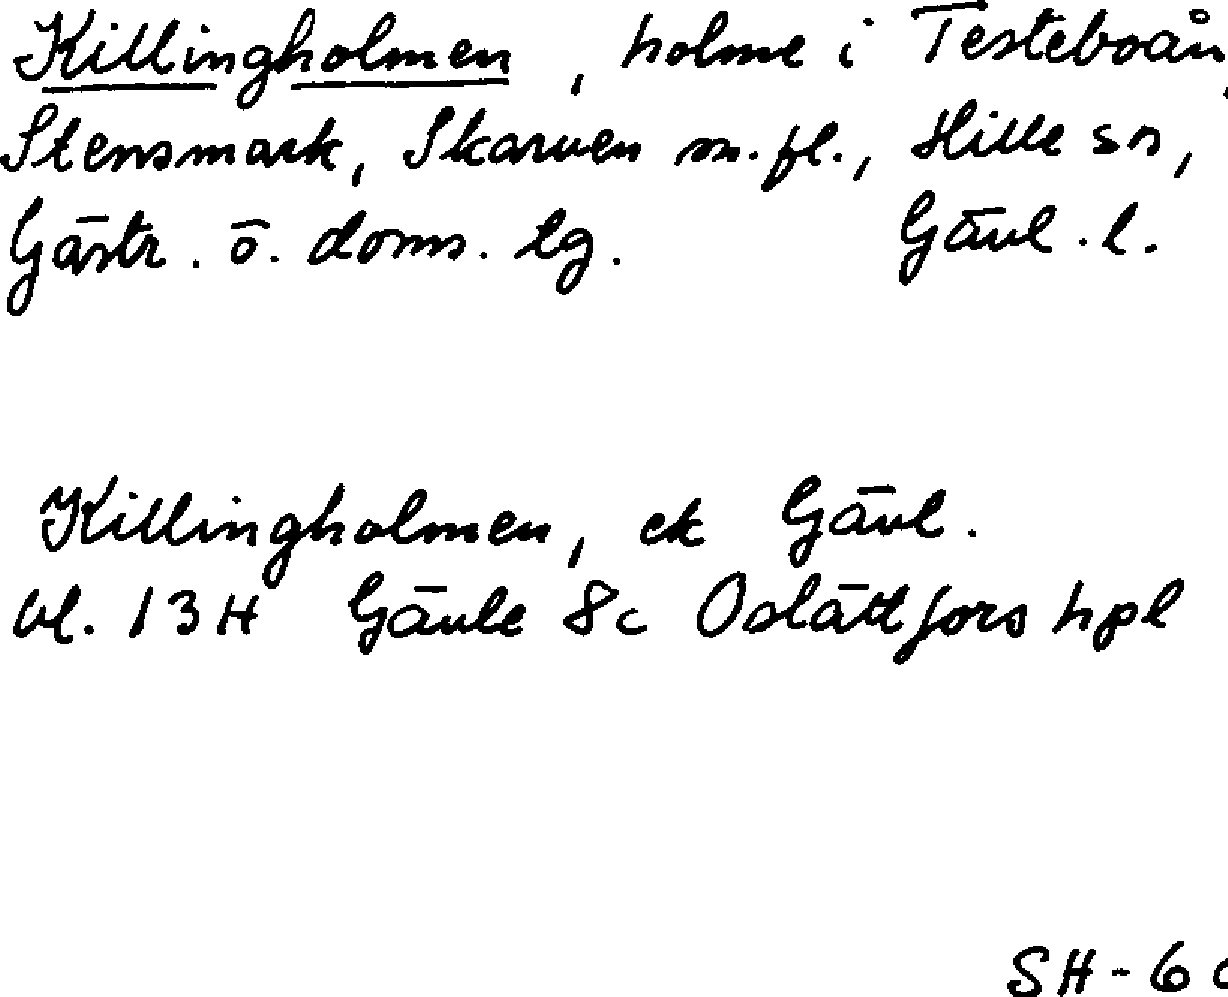 Killingholmen, holme i Testeboån,
Stensmark, Skarven m.fl., Hille sn,
Gästr. ö. doms. tg. Gävl. l.
Killingholmen, ek Gävl.
bl. 13H Gävle 8c Oslättfors hpl
SH-6